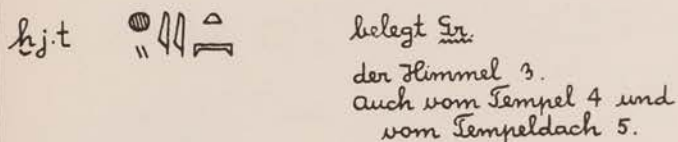 ḫj.t 𓐍𓏭𓇋𓇋𓏏𓇯 belegt Gr.
der Himmel 3.
auch vom Tempel 4 und
vom Tempeldach 5.